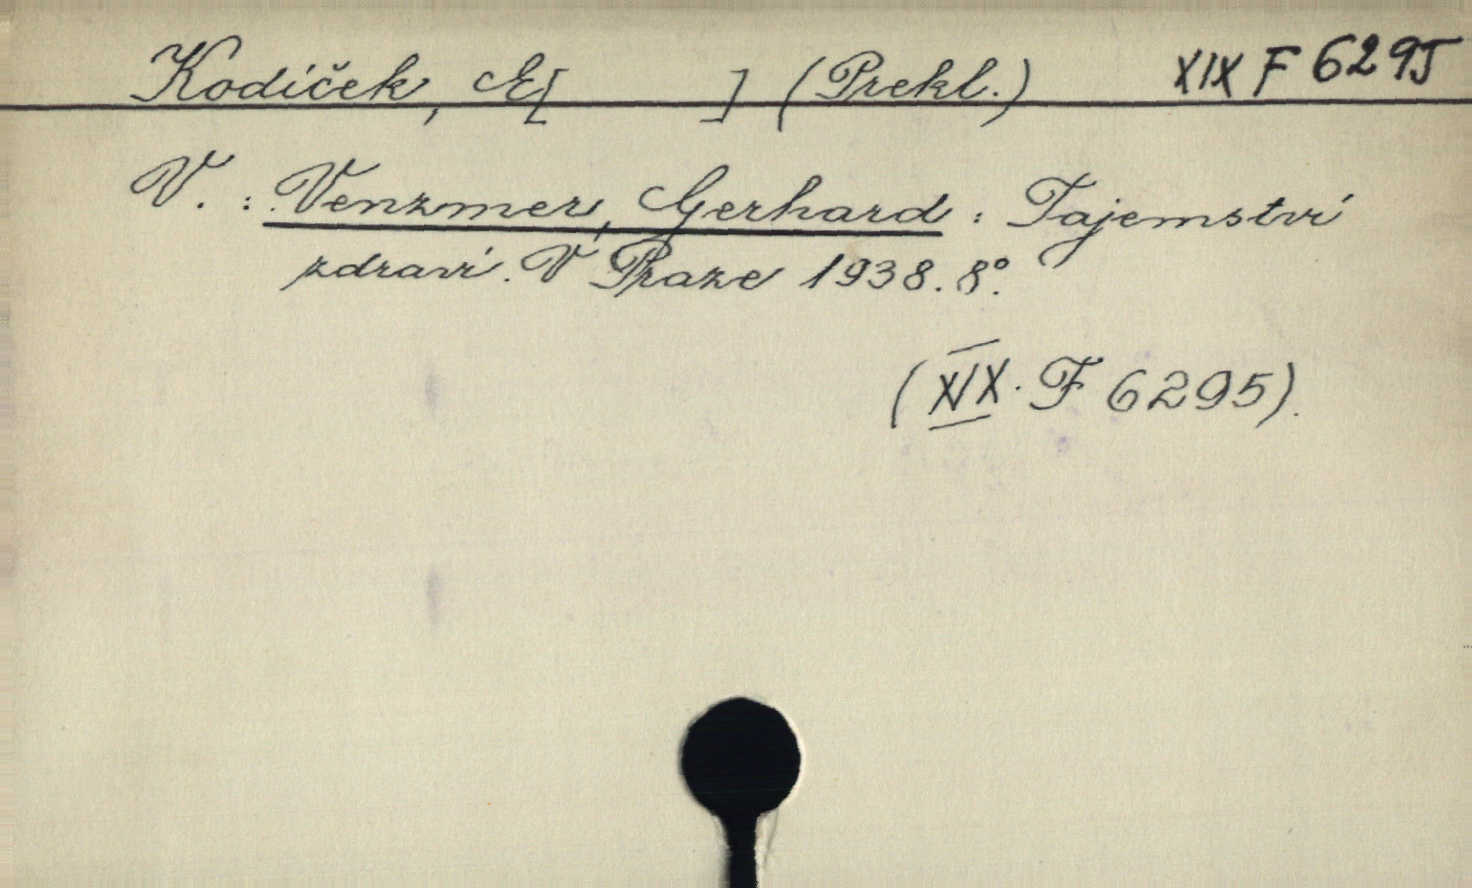 Kodíček, E[ ] (Prekl.) XIX F 6295
V. : Venzmer, Gerhard : Tajemství
zdraví. V Praze 1938. 8°.
(XIX. F 6295).